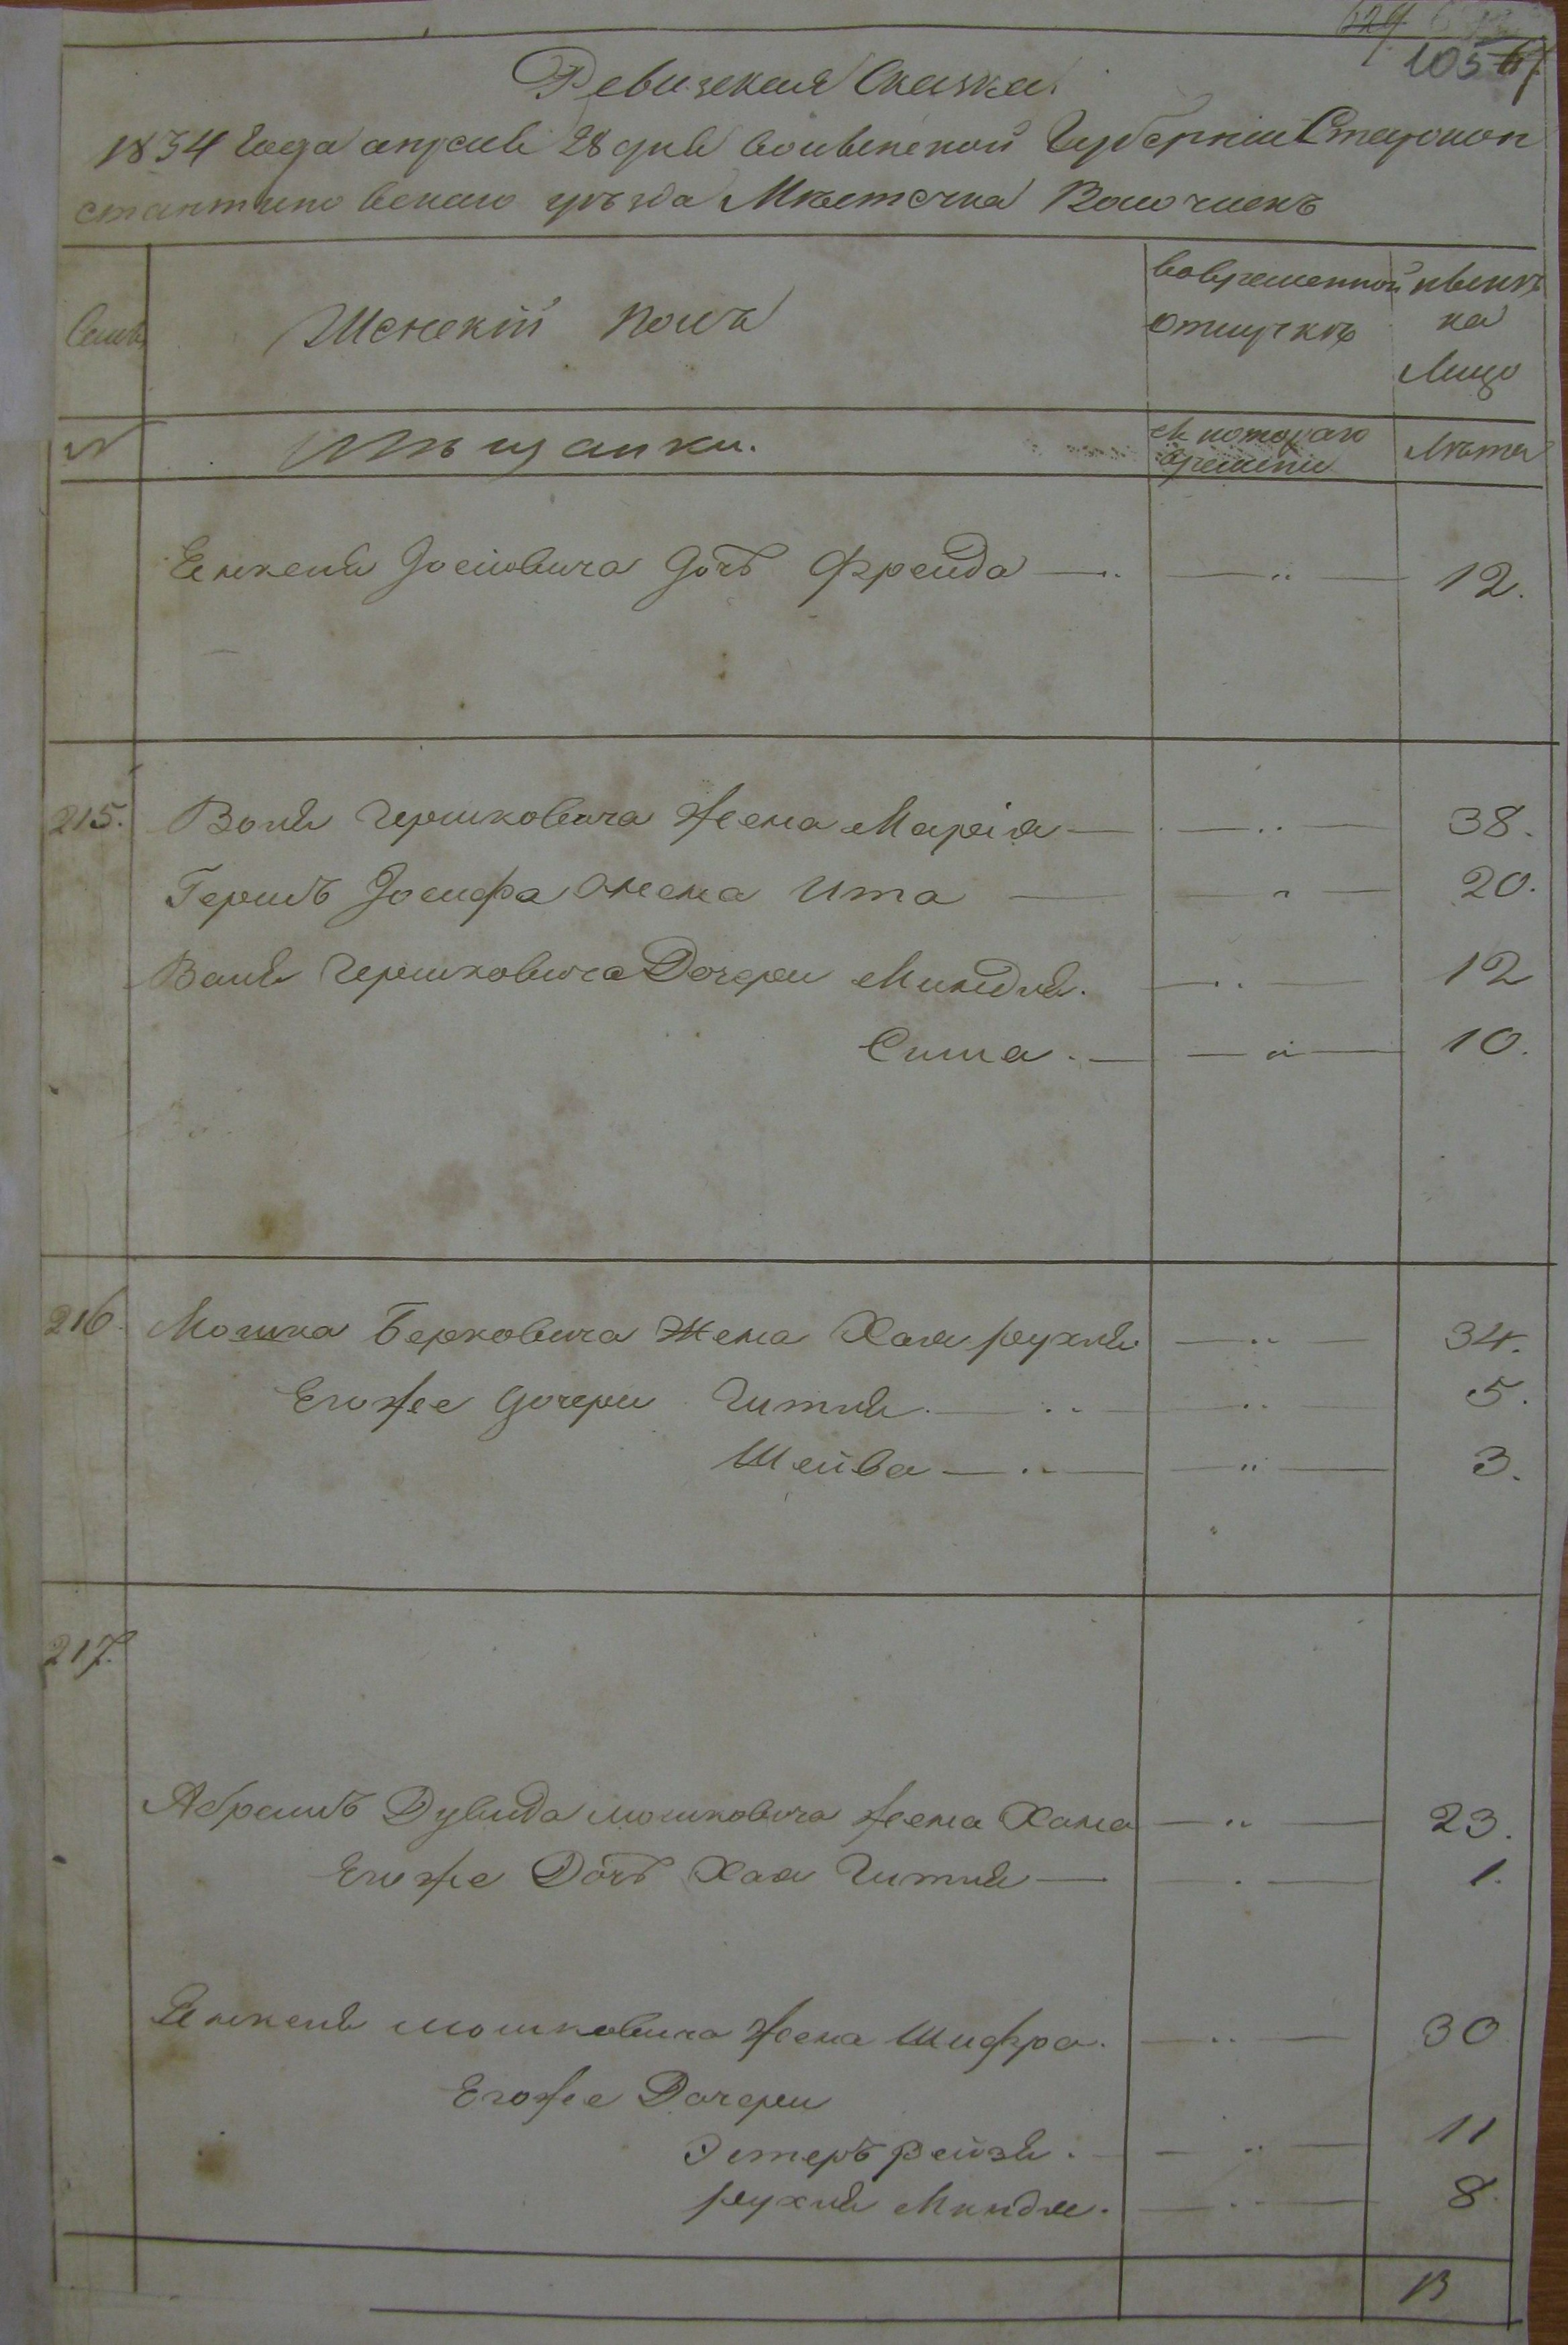 1056
Ревизская Сказка.
1834 года апреля 28 дня волынской Губерніи Старокон
стантиновскаго уѣзда Мѣстечка Волочискъ
Семьи
Женскій полъ
вовременной
отлучкѣ
нынѣ
на
Лицо
№
Мѣщанки.
Съ котораго
времени
Лѣта
Янкеля Іосіовича дочъ Фрейда — 12.
215. Волля Гершковича жена Маріа — 38.
Гершъ Іосифа жена Ита — 20.
Волля Гершковича Дочери Миндля. 12
Сима. — 10.
216. Мошка Берковича жена Хая рухля 34.
Егоже дочери Гитля. — 5.
Шейва — 3.
217.
Абрамъ Дувида мошковича жена Хана 23.
Егоже Дочъ Хая Гитля — 1.
Янкеля мошковича жена Шифра. 30
Егоже Дочери
Эстеръ рейзя. 11
рухля Миндля. 8.
13